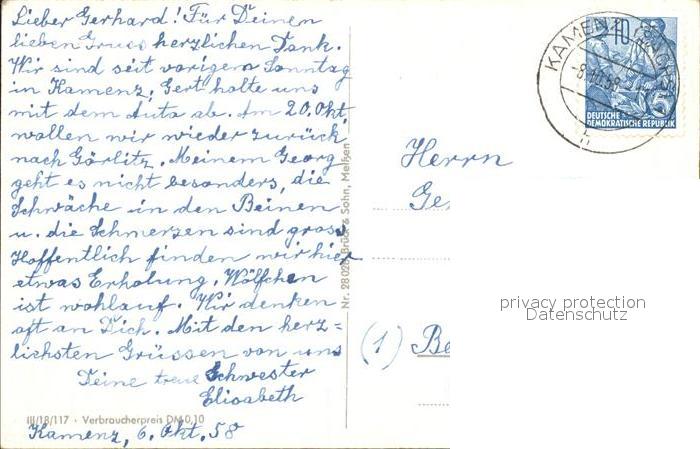 Lieber Gerhard! Für Deinen
lieben Gruss herzlichen Dank.
Wir sind seit vorigem Sonntag
in Kamenz, Gert holte uns
mit dem Auto ab. Am 20. Okt.
wollen wir wieder zurück
nach Görlitz. Meinem Georg
geht es nicht besonders, die
Schwäche in den Beinen
u. die Schmerzen sind gross.
Hoffentlich finden wir hier
etwas Erholung. Wölfchen
ist wohlauf. Wir denken
oft an Dich. Mit den herz=
lichsten Grüssen von uns
Deine treue Schwester
Elisabeth
III/18/117 · Verbraucherpreis DM 0,10
Kamenz, 6. Okt. 58
Nr. 28 028 Brück & Sohn, Meißen
KAMENZ
10
DEUTSCHE
DEMOKRATISCHE REPUBLIK
Herrn
Ge
(1) Be
privacy protection
Datenschutz